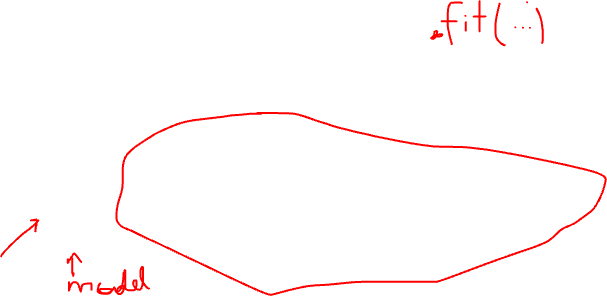 .fit(...)
model